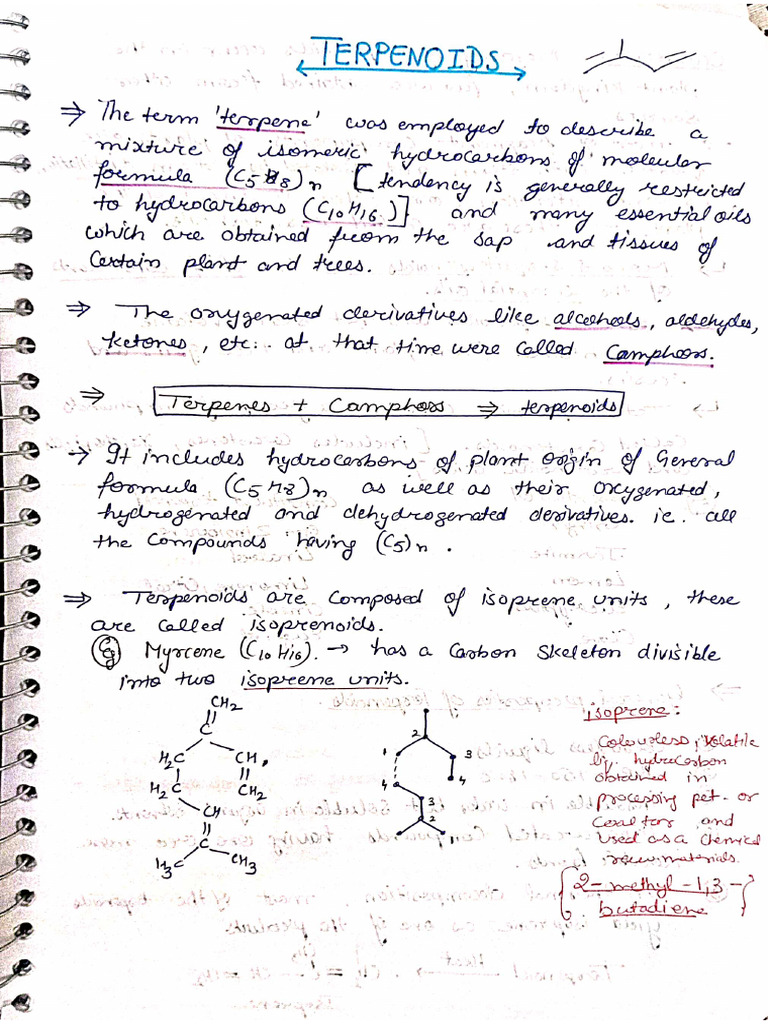 TERPENOIDS
⇒ The term 'terpene' was employed to describe a
mixture of isomeric hydrocarbons of molecular
formula (C5H8)n [tendency is generally restricted
to hydrocarbons (C10H16)] and many essential oils
which are obtained from the sap and tissues of
Certain plant and trees.
⇒ The oxygenated derivatives like alcohols, aldehydes,
ketones, etc. at that time were called Camphors.
⇒ Terpenes + Camphors ⇒ terpenoids
→ It includes hydrocarbons of plant origin of General
formula (C5H8)n as well as their oxygenated,
hydrogenated and dehydrogenated derivatives. i.e. all
the Compounds having (C5)n.
⇒ Terpenoids are composed of isoprene units, these
are called isoprenoids.
Eg Myrcene (C10H16). → has a Carbon Skeleton divisible
into two isoprene units.
CH2
C
H2C CH,
H2C CH2
CH
C
H3C CH3
2
1 3
4 4
3
2
isoprene:
Colourless, Volatile
liq hydrocarbon
obtained in
processing pet. or
Coal tar and
used as a chemical
raw materials.
{2-methyl-1,3-
butadiene}